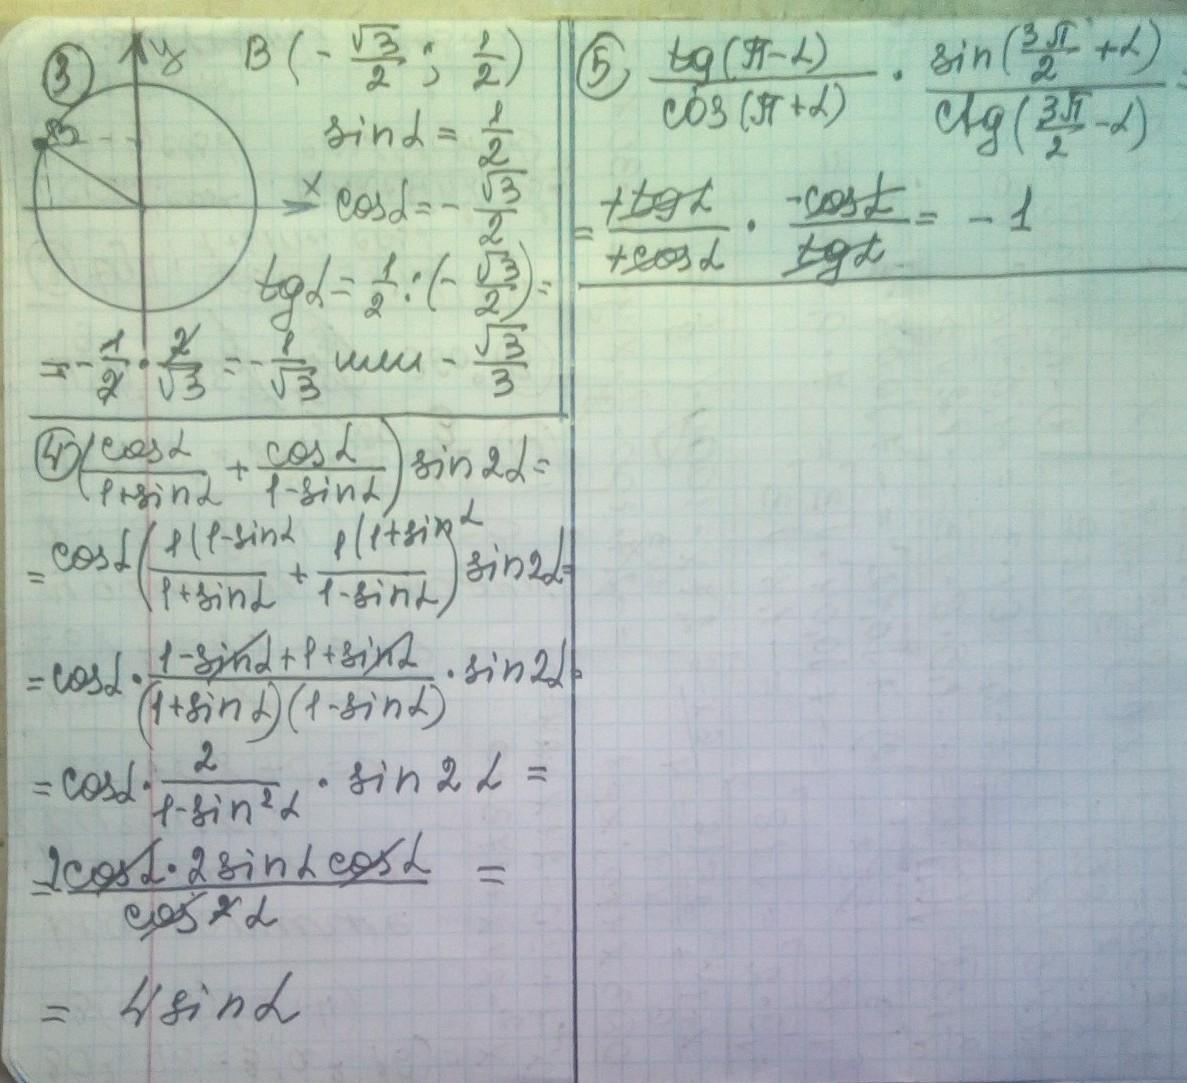 ③ y B (-√3/2 ; 1/2)
B
sin α = 1/2
x cos α = -√3/2
tg α = 1/2 : (-√3/2) =
= -1/2 · 2/√3 = -1/√3 или -√3/3
④ (cos α/(1+sin α) + cos α/(1-sin α)) sin 2α =
= cos α (1(1-sin α/(1+sin α) + 1(1+sin α/(1-sin α)) sin 2α =
= cos α · (1-sin α+1+sin α)/((1+sin α)(1-sin α)) · sin 2α =
= cos α · 2/(1-sin² α) · sin 2α =
= (2cos α · 2 sin α cos α)/(cos² α) =
= 4 sin α
⑤ tg(π-α)/cos(π+α) · sin(3π/2+α)/ctg(3π/2-α) =
= +tg α/+cos α · -cos α/tg α = - 1